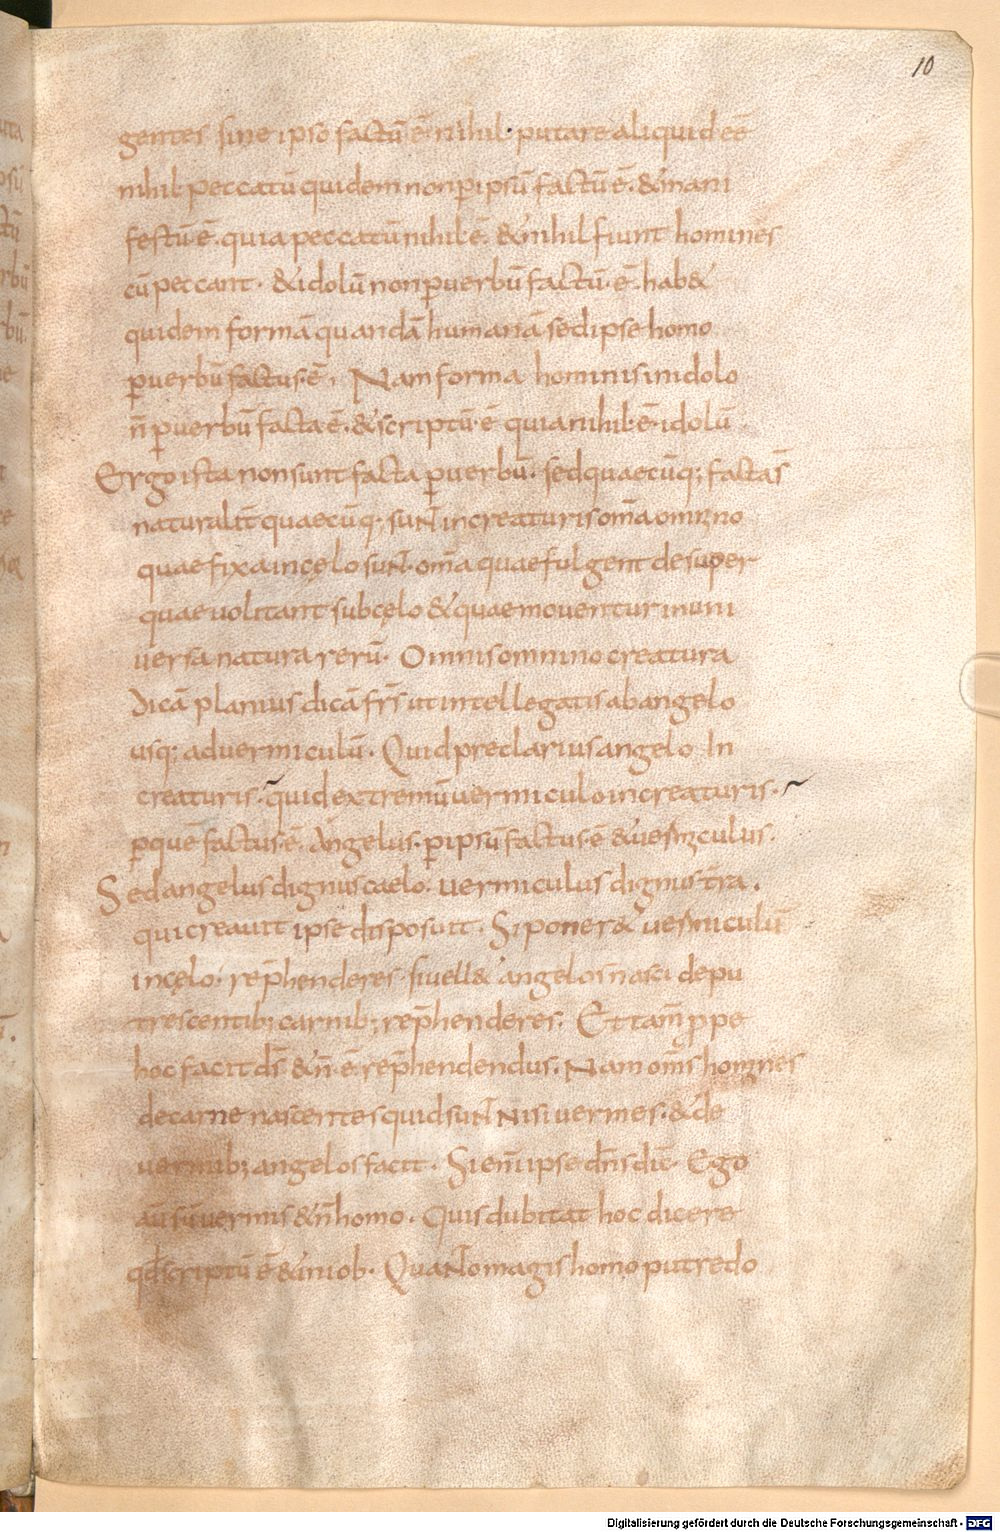 10
gentes sine ipso factū ē nihil· putare aliquid eē
nihil· peccatū quidem non p̱ ipsū factū ē· & mani
festū ē· quia peccatū nihil ē· & nihil fiunt homines
cū peccant· & idolū non p̱ verbū factū· ē· hab&
quidem formā quandā humanā sed ipse homo
p̱ verbū factus· ē· Nam forma hominis in idolo
n̄ p̱ verbū facta ē· & scriptū· ē quia nihil· ē· idolū·
Ergo ista non sunt facta p̱ verbū· sed quaecūq; facta s̄
naturalit̄ quaecūq; suNt in creaturis om̄a omnino
quae fixa in cęlo suNt· om̄a quae fulgent desuper
quae volitant sub cęlo & quae moventur in uni
versa natura rerū· Omnis omnino creatura
Dicā planius dicā fr̄s ut intellegatis ab angelo
usq; ad vermiculū· Quid preclarius angelo In
creaturis· quid extremū vermiculo in creaturis·
p̱ quē factus· ē· Angelus· p̱ ipsū factus· ē & vermiculus·
Sed angelus dignus caelo· vermiculus dignus t̄ra·
qui creavit ipse disposuit· Si poner& vermiculū
in cęlo· rep̄henderes· si vell& angelos nasci de pu
trescentib; carnib; rep̄henderes· Et tam̄ p̱pe
hoc facit d̄s & n̄· ē rep̄hendendus· Nam om̄s homines
de carne nascentes quid suNt Nisi vermes· & de
vermib; angelos facit· Si enī ipse dn̄s dic̄· Ego
aū sū vermis & n̄ homo· Quis dubitat hoc dicere
qđ scriptū ē & in iob· QuaNto magis homo putredo
Digitalisierung gefördert durch die Deutsche Forschungsgemeinschaft - DFG